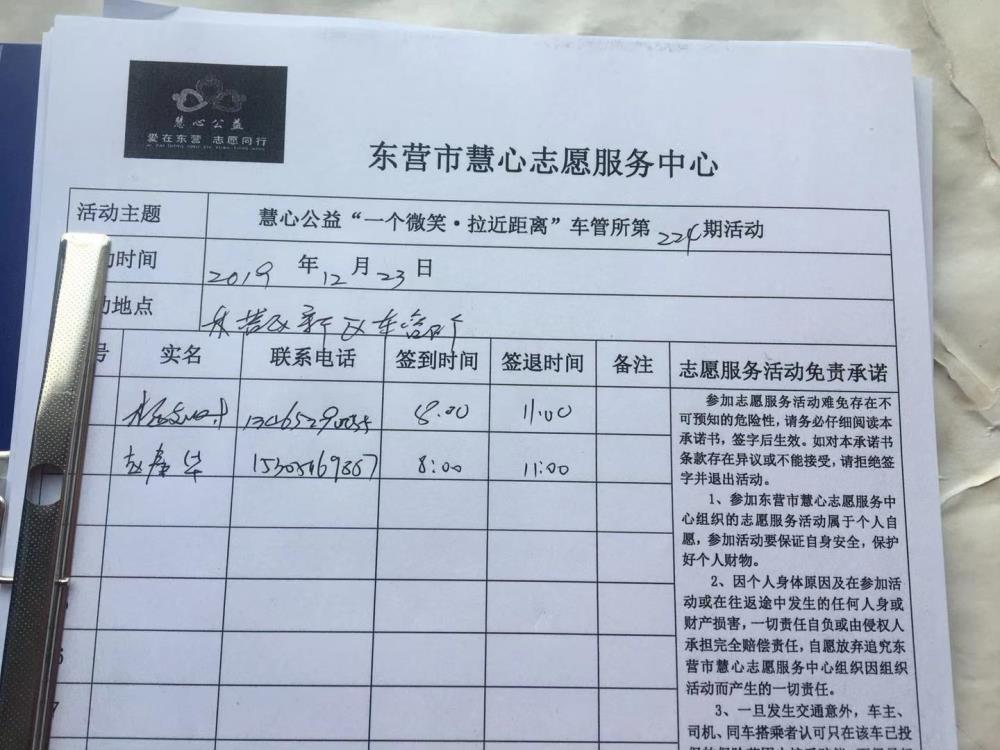 慧心公益
爱在东营 志愿同行
东营市慧心志愿服务中心
活动主题 慧心公益“一个微笑·拉近距离”车管所第224期活动
动时间 2019 年 12 月 23 日
动地点
号 实名 联系电话 签到时间 签退时间 备注 志愿服务活动免责承诺
8:00 11:00
赵 华 8:00 11:00
参加志愿服务活动难免存在不
可预知的危险性，请务必仔细阅读本
承诺书，签字后生效。如对本承诺书
条款存在异议或不能接受，请拒绝签
字并退出活动。
1、参加东营市慧心志愿服务中
心组织的志愿服务活动属于个人自
愿，参加活动要保证自身安全，保护
好个人财物。
2、因个人身体原因及在参加活
动或在往返途中发生的任何人身或
财产损害，一切责任自负或由侵权人
承担完全赔偿责任，自愿放弃追究东
营市慧心志愿服务中心组织因组织
活动而产生的一切责任。
3、一旦发生交通意外，车主、
司机、同车搭乘者认可只在该车已投